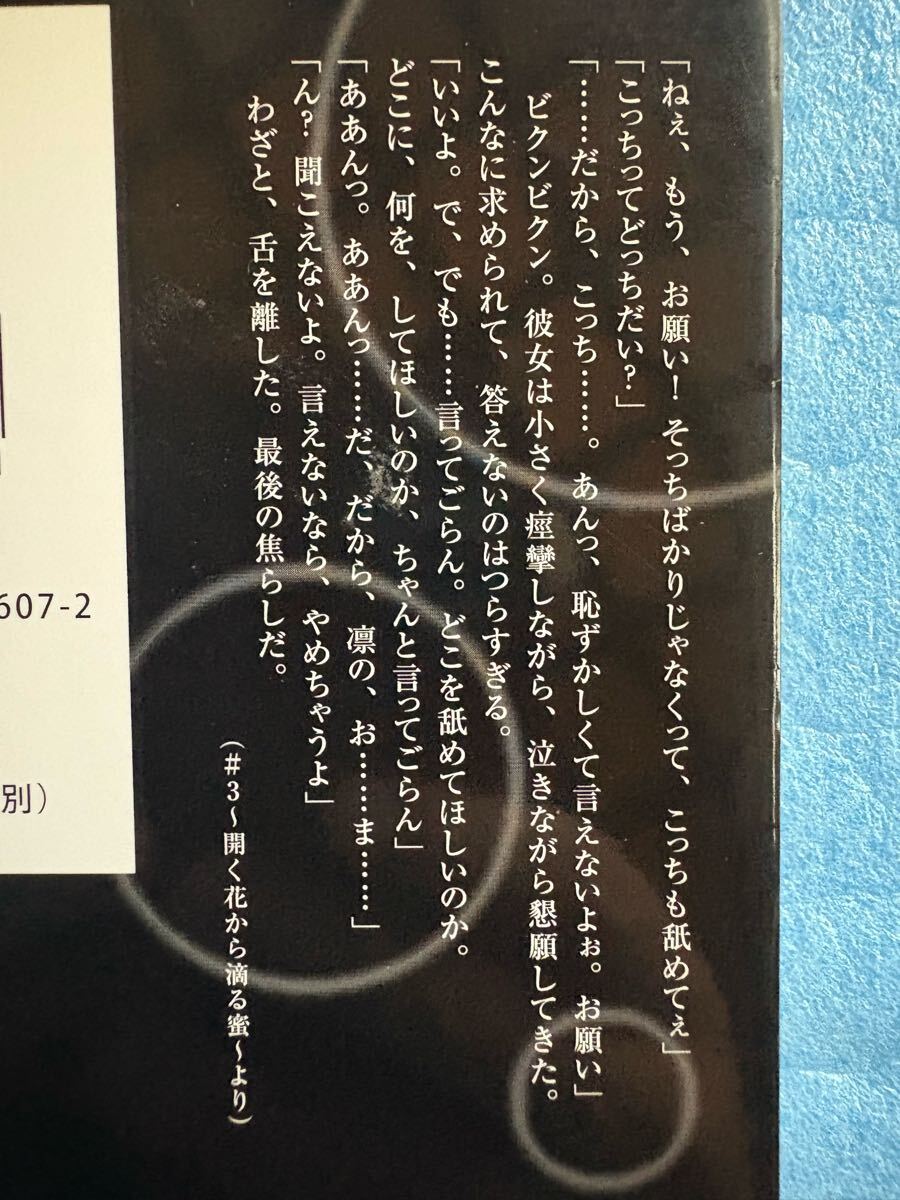 「ねぇ、もう、お願い！そっちばかりじゃなくって、こっちも舐めてぇ」
「こっちってどっちだい？」
「……だから、こっち……。あんっ、恥ずかしくて言えないよぉ。お願い」
ビクンビクン。彼女は小さく痙攣しながら、泣きながら懇願してきた。
こんなに求められて、答えないのはつらすぎる。
「いいよ。で、でも……言ってごらん。どこを舐めてほしいのか。
どこに、何を、してほしいのか、ちゃんと言ってごらん」
「ああんっ。ああんっ……だ、だから、凛の、お……ま……」
「ん？聞こえないよ。言えないなら、やめちゃうよ」
わざと、舌を離した。最後の焦らしだ。
（＃３～開く花から滴る蜜～より）
607-2
別）